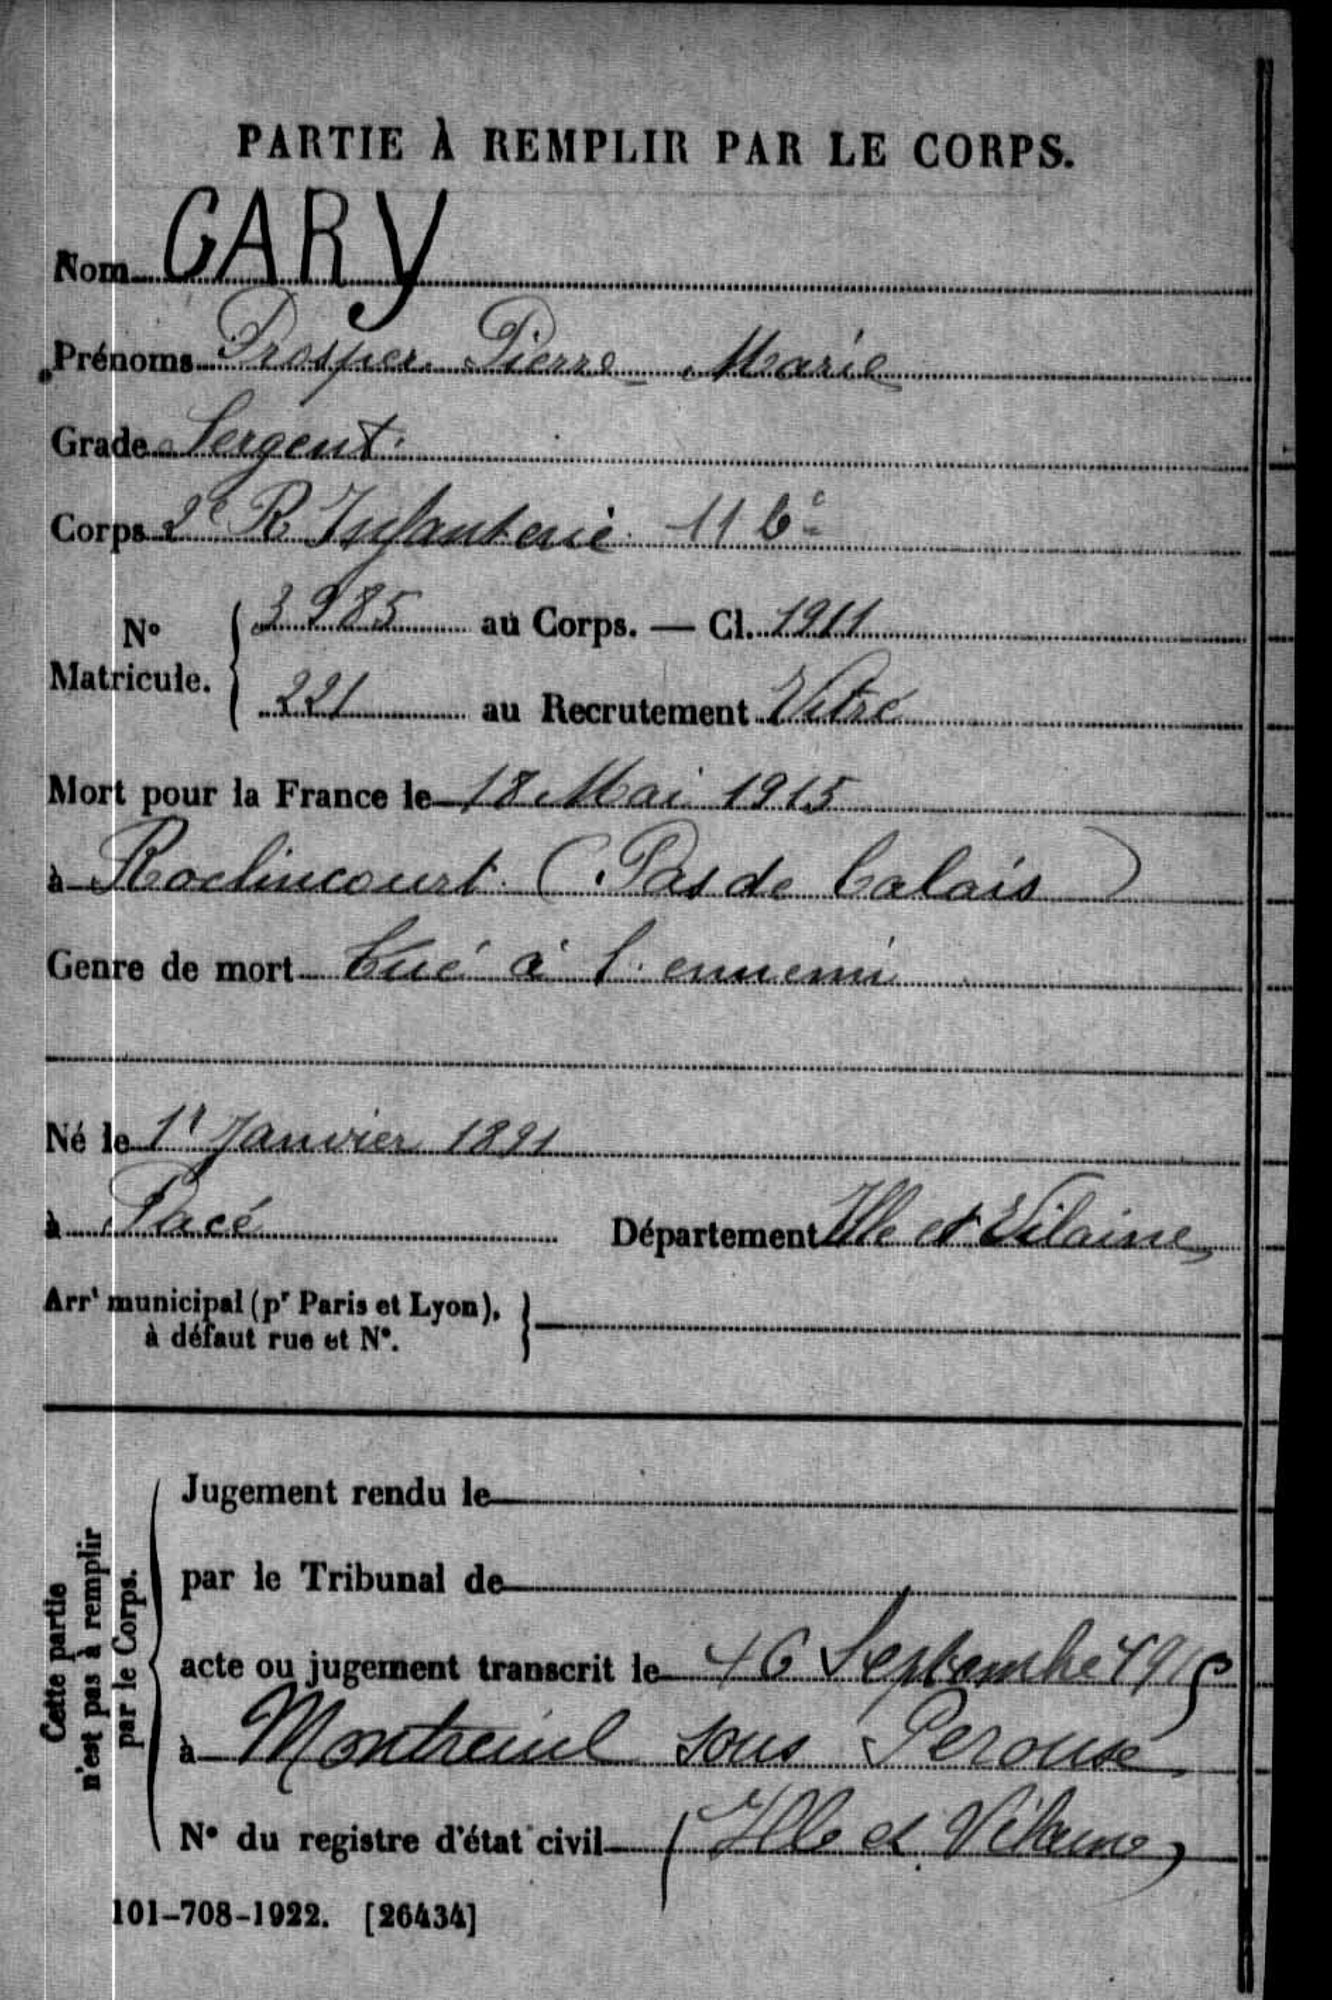 PARTIE À REMPLIR PAR LE CORPS.
Nom GARY
Prénoms Prosper Pierre Marie
Grade Sergent
Corps 2e R Infanterie 11 Cie
No Matricule. 3985 au Corps. — Cl. 1911
221 au Recrutement Vitré
Mort pour la France le 18 Mai 1915
à Roclincourt (Pas de Calais)
Genre de mort Tué à l'ennemi
Né le 1r Janvier 1891
à Pacé Département Ille et Vilaine
Arrt municipal (pr Paris et Lyon),
à défaut rue et No.
Cette partie
n'est pas à remplir
par le Corps.
Jugement rendu le
par le Tribunal de
acte ou jugement transcrit le 16 Septembre 1915
à Montreuil sous Perouse
No du registre d'état civil (Ille et Vilaine)
101-708-1922. [26434]